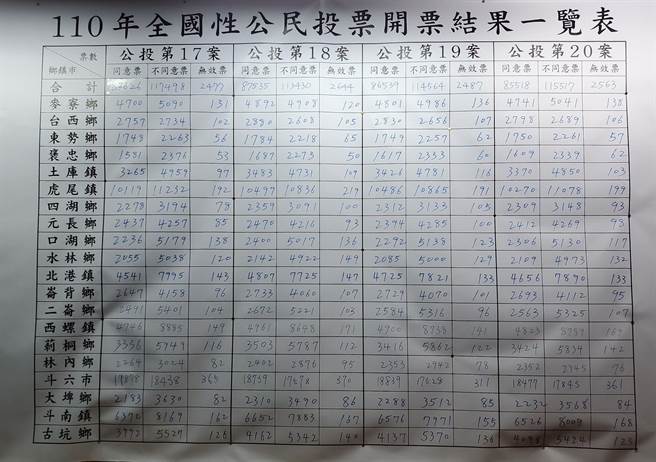 110年全國性公民投票開票結果一覽表
票數 鄉鎮市 公投第17案 公投第18案 公投第19案 公投第20案
同意票 不同意票 無效票 同意票 不同意票 無效票 同意票 不同意票 無效票 同意票 不同意票 無效票
合計 117498 2477 87535 113430 2644 86539 114564 2487 85518 115517 2563
麥寮鄉 4700 5090 131 4892 4908 120 4801 4986 136 4741 5041 138
台西鄉 2757 2734 102 2890 2608 105 2830 2656 107 2798 2689 106
東勢鄉 1748 2263 56 1784 2218 65 1749 2257 62 1750 2261 57
褒忠鄉 1581 2376 53 1687 2273 50 1617 2353 60 1609 2339 62
土庫鎮 3265 4959 97 3483 4731 109 3426 4781 116 3370 4850 103
虎尾鎮 10119 11232 192 10497 10836 219 10486 10865 191 10270 11078 199
四湖鄉 2278 3194 79 2359 3091 100 2312 3133 105 2309 3148 93
元長鄉 2437 4257 85 2470 4216 93 2394 4285 100 2412 4269 98
口湖鄉 2236 5179 138 2400 5017 136 2292 5138 123 2306 5130 117
水林鄉 2055 5038 120 2142 4922 149 2085 5000 129 2109 4973 132
北港鎮 4541 7995 143 4807 7725 147 4725 7821 133 4656 7890 133
崙背鄉 2647 4158 96 2733 4060 107 2729 4070 101 2693 4112 95
二崙鄉 2491 5401 104 2672 5221 103 2584 5316 96 2563 5325 107
西螺鎮 4746 8885 149 4961 8648 171 4900 8738 141 4823 169
莉桐鄉 3356 5949 116 3503 5787 112 3416 5862 122 3424 5834 142
林內鄉 2264 3024 82 2402 2876 95 2353 2942 78 2352 2945 76
斗六市 18438 363 370 18839 17628 311 18477 17845 361
大埤鄉 2183 3630 82 2310 3490 86 2288 3512 85 2232 3568 84
斗南鎮 6372 8169 162 6652 7883 167 6576 7971 155 6526 8009 168
古坑鄉 5527 126 4162 5342 140 4137 5370 136